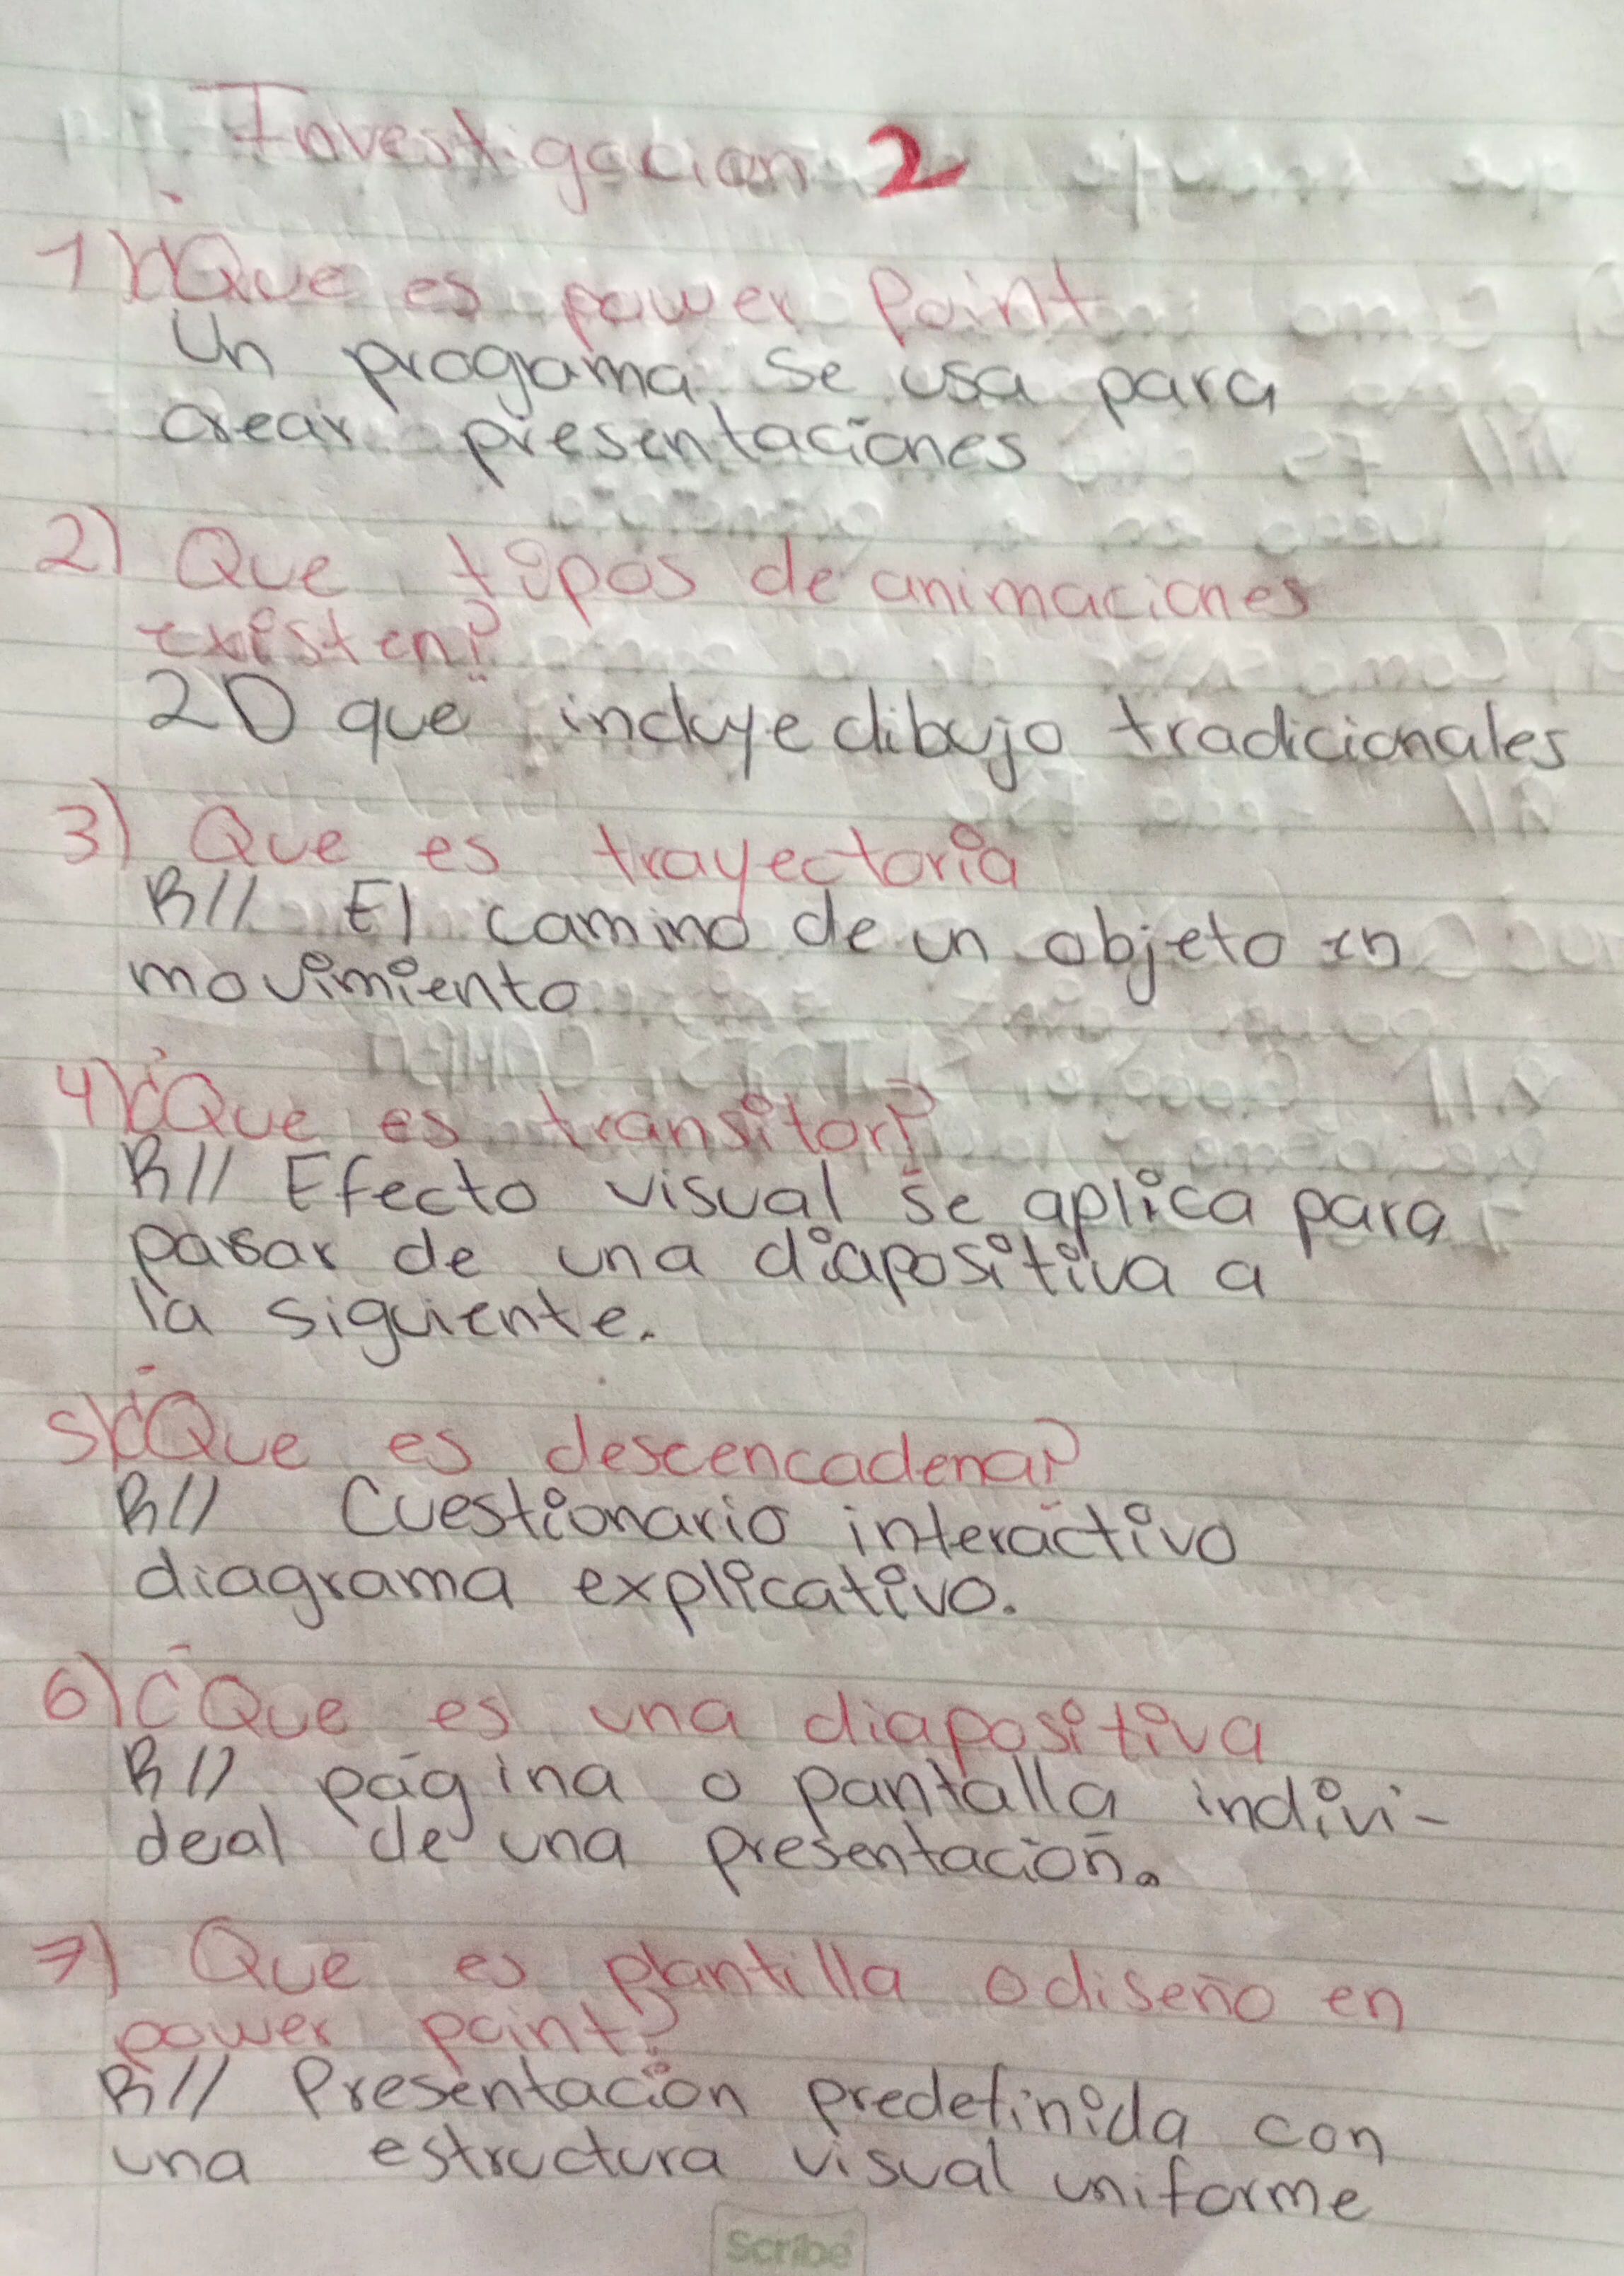 Investigacion 2
1) ¿Que es power Point
Un programa se usa para
crear presentaciones
2) Que tipos de animaciones
existen?
2D que incluye dibujo tradicionales
3) Que es trayectoria
R// El camino de un objeto en
movimiento
4) ¿Que es transitor?
R// Efecto visual se aplica para
pasar de una diapositiva a
la siguiente.
5) ¿Que es descencadena?
R// Cuestionario interactivo
diagrama explicativo.
6) ¿Que es una diapositiva
R// página o pantalla indivi-
deal de una presentación.
7) Que es plantilla o diseño en
power point?
R// Presentación predefinida con
una estructura visual uniforme
Scribe